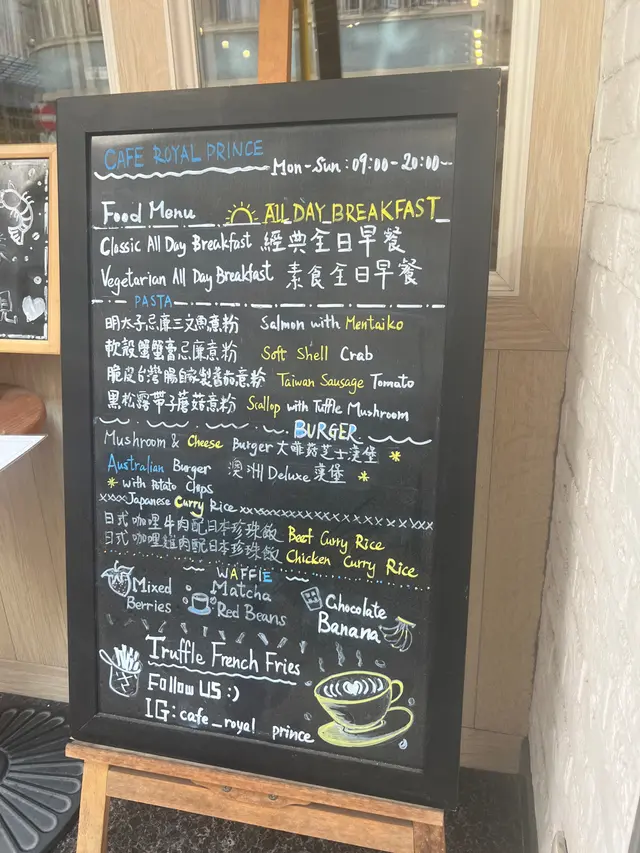 CAFE ROYAL PRINCE
Mon-Sun: 09:00-20:00
Food Menu ALL DAY BREAKFAST
Classic All Day Breakfast 經典全日早餐
Vegetarian All Day Breakfast 素食全日早餐
PASTA
明太子忌廉三文魚意粉 Salmon with Mentaiko
軟殼蟹蟹膏忌廉意粉 Soft Shell Crab
脆皮台灣腸自家製蕃茄意粉 Taiwan Sausage Tomato
黑松露帶子蘑菇意粉 Scallop with Tuffle Mushroom
BURGER
Mushroom & Cheese Burger 大啡菇芝士漢堡 *
Australian Burger 澳洲Deluxe漢堡 *
* with Potato Chips
xxxx Japanese Curry Rice xxxxxxxxxxxxxxxxxx
日式咖哩牛肉配日本珍珠飯 Beef Curry Rice
日式咖哩雞肉配日本珍珠飯 Chicken Curry Rice
WAFFlE
Mixed Berries
Matcha Red Beans
Chocolate Banana
Truffle French Fries
Follow US :)
IG: cafe_royal_prince